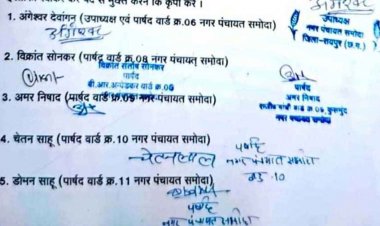 1. अंगेश्वर देवांगन (उपाध्यक्ष एवं पार्षद वार्ड क्र.06 नगर पंचायत समोदा)
उपाध्यक्ष
नगर पंचायत समोदा
जिला-रायपुर (छ.ग.)
2. विक्रांत सोनकर (पार्षद वार्ड क्र.08 नगर पंचायत समोदा)
विक्रांत संतोष सोनकर
पार्षद
बी.आर.अम्बेडकर वार्ड क्र.08
पार्षद
अमर निषाद
3. अमर निषाद (पार्षद वार्ड क्र.09 नगर पंचायत समोदा)
4. चेतन साहू (पार्षद वार्ड क्र.10 नगर पंचायत समोदा)
चेतनलाल
पार्षद
नगर पंचायत समोदा
वार्ड 10
5. डोमन साहू (पार्षद वार्ड क्र.11 नगर पंचायत समोदा)
पार्षद
नगर पंचायत समोदा